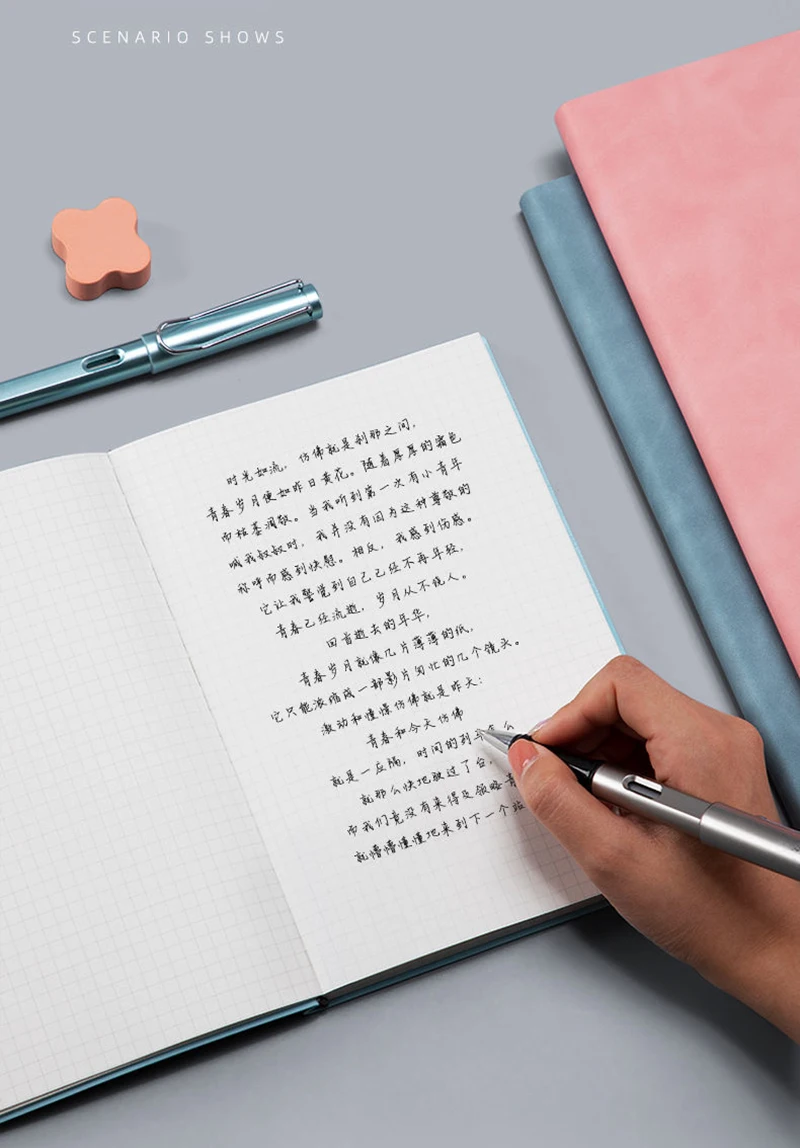 SCENARIO SHOWS
时光如流，仿佛就是刹那之间，
青春岁月便如昨日黄花。随着厚厚的霜色
而枯萎凋敝。当我听到第一次有小青年
喊我叔叔时，我并没有因为这种尊敬的
称呼而感到快慰。相反，我感到伤感。
它让我警觉到自己已经不再年轻，
青春已经流逝，岁月从不饶人。
回首逝去的年华，
青春岁月就像几片薄薄的纸，
它只能浓缩成一部影片匆忙的几个镜头。
激动和憧憬仿佛就是昨天；
青春和今天仿佛
就是一丘隔，时间的列车怎么
就那么快地驶过了台，
而我们竟没有来得及领略青
就懵懵懂懂地来到下一个站